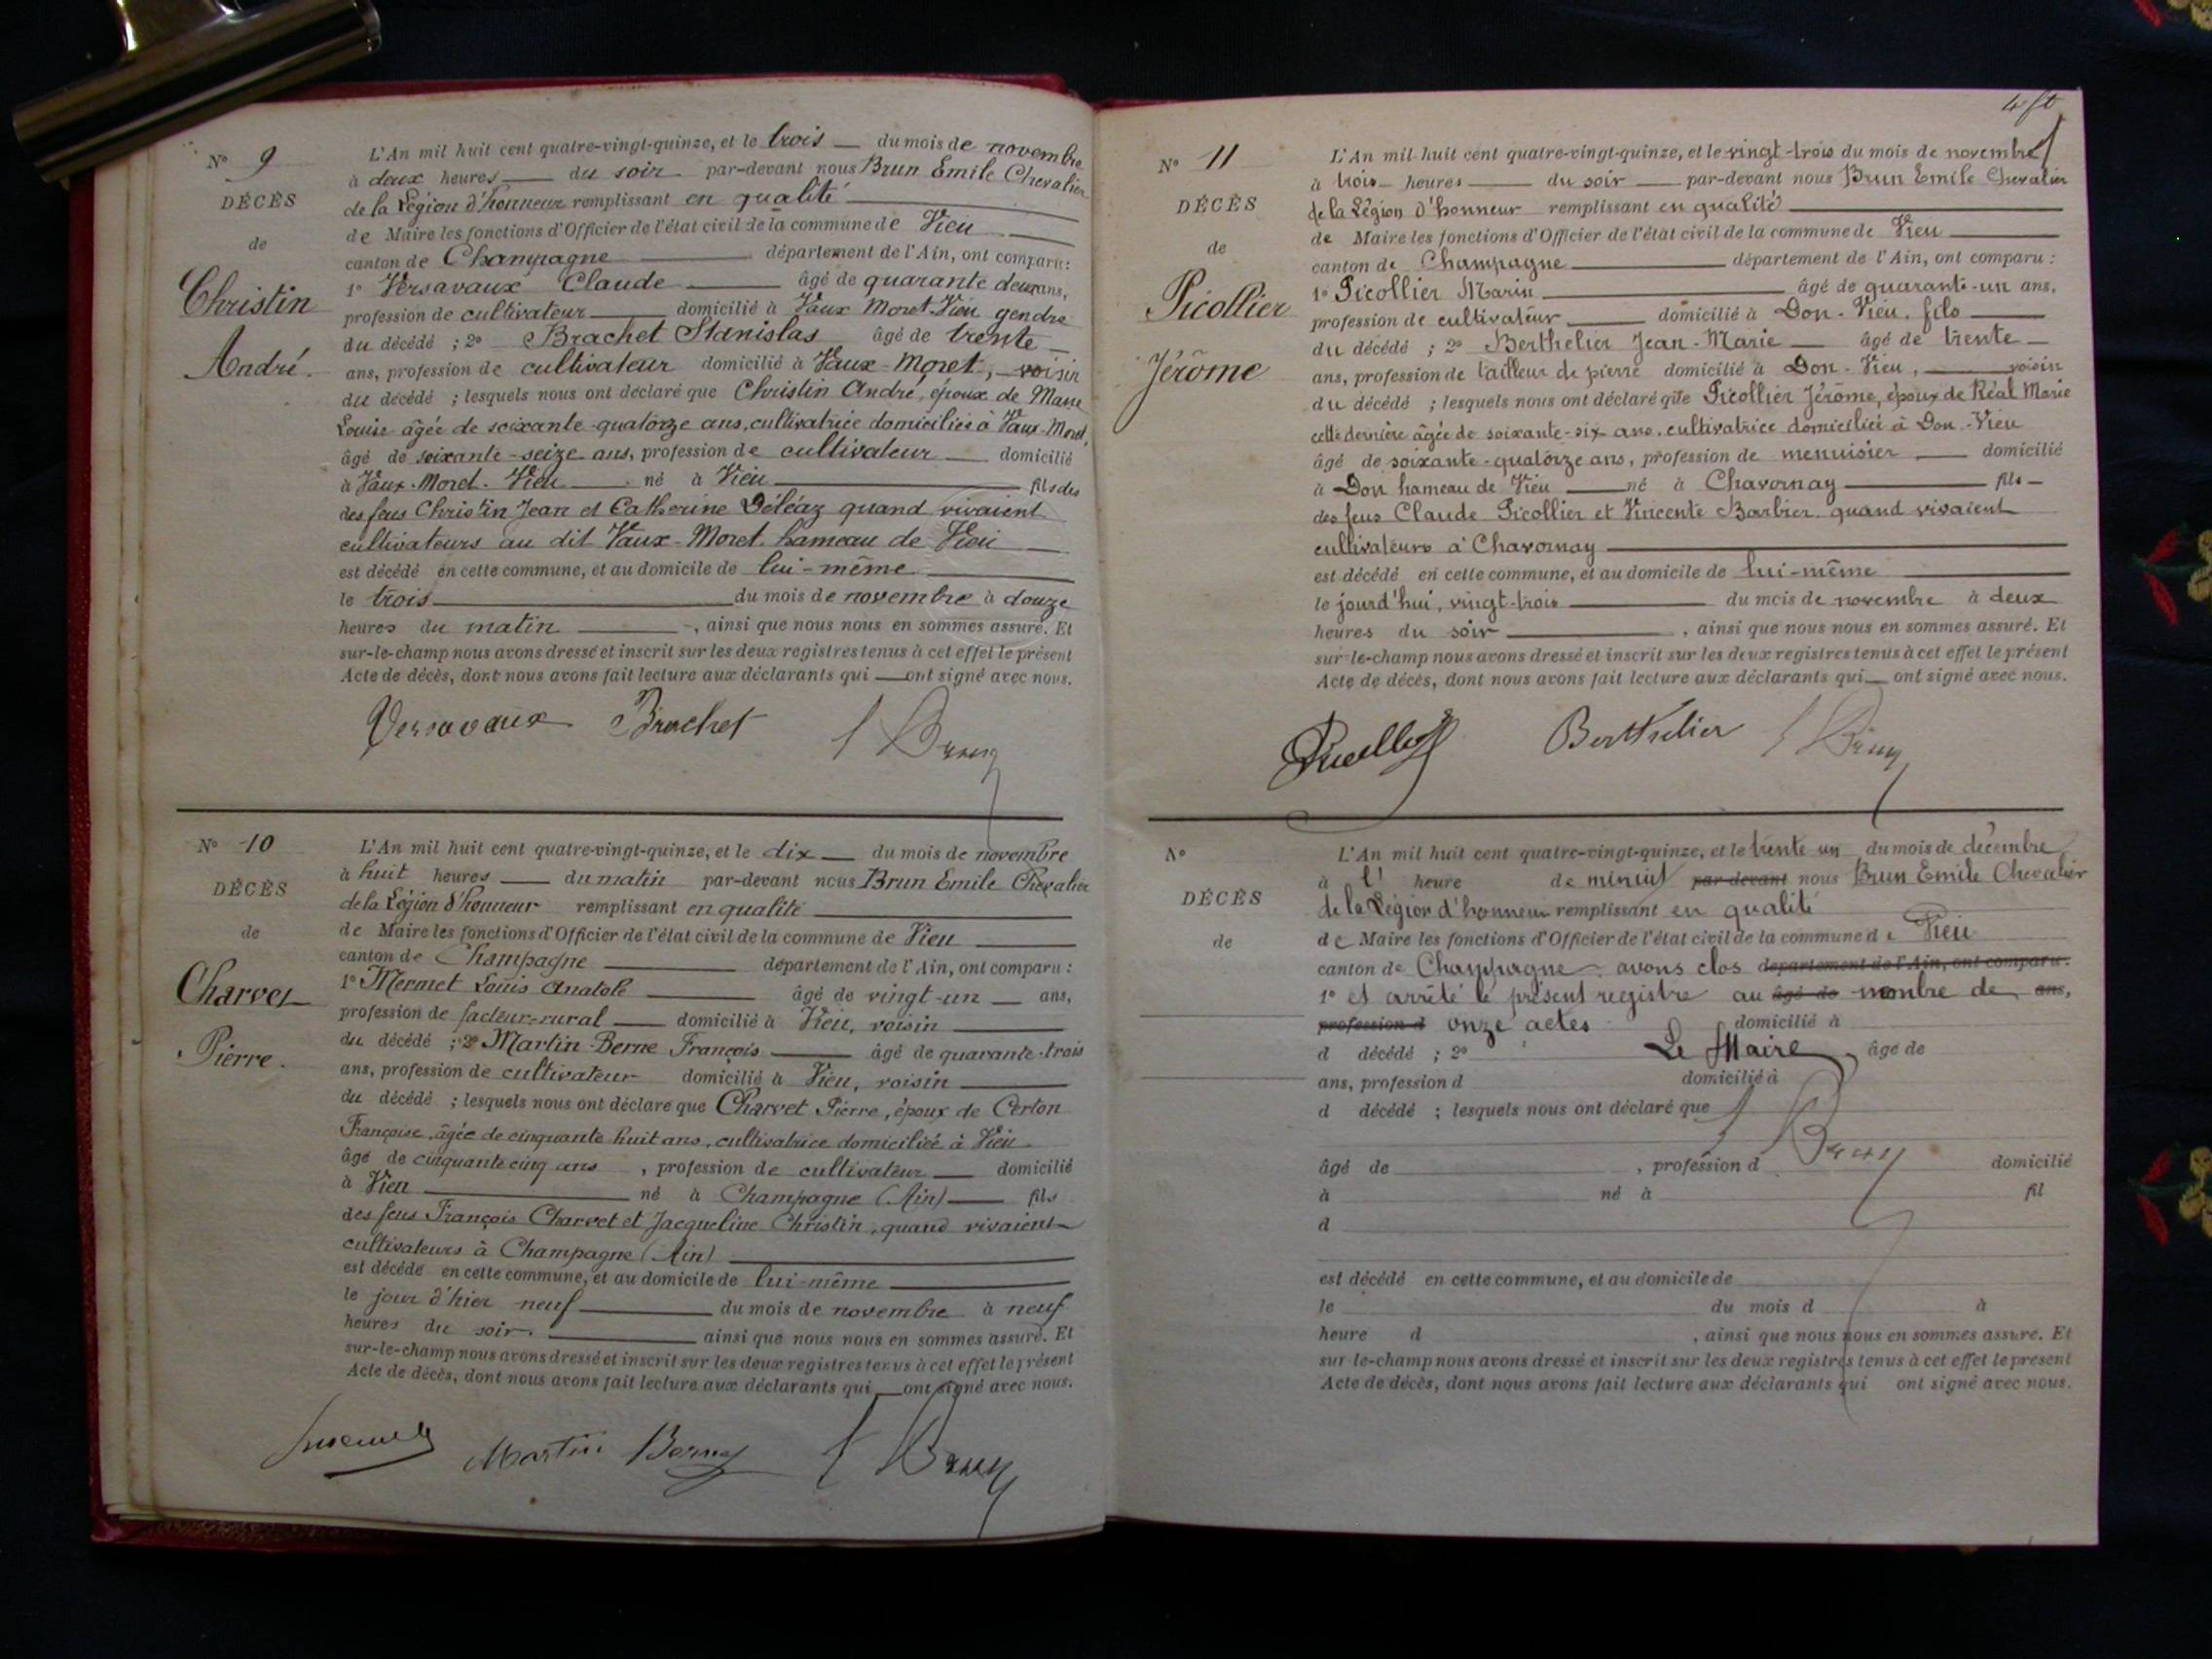 N° 9
DÉCÈS
de
Christin
André.
L'An mil huit cent quatre-vingt-quinze, et le trois du mois de novembre
à deux heures du soir par-devant nous Brun Emile Chevalier
de la Légion d'honneur remplissant en qualité
de Maire les fonctions d'Officier de l'état civil de la commune de Vieu
canton de Champagne département de l'Ain, ont comparu :
1° Versavaux Claude âgé de quarante deux ans,
profession de cultivateur domicilié à Vaux Moret-Vieu gendre
du décédé ; 2° Brachet Stanislas âgé de trente
ans, profession de cultivateur domicilié à Vaux-Moret, voisin
du décédé ; lesquels nous ont déclaré que Christin André, époux de
Louise âgée de soixante-quatorze ans, cultivatrice domiciliée à Vaux-Moret,
âgé de soixante-seize ans, profession de cultivateur domicilié
à Vaux-Moret-Vieu né à Vieu fils des
des feus Christin Jean et Catherine Déléaz quand vivaient
cultivateurs au dit Vaux-Moret hameau de Vieu
est décédé en cette commune, et au domicile de lui-même
le trois du mois de novembre à douze
heures du matin, ainsi que nous nous en sommes assuré. Et
sur-le-champ nous avons dressé et inscrit sur les deux registres tenus à cet effet le présent
Acte de décès, dont nous avons fait lecture aux déclarants qui ont signé avec nous.
Versavaux Brachet E Brun
N° 10
DÉCÈS
de
Charvet
Pierre.
L'An mil huit cent quatre-vingt-quinze, et le dix du mois de novembre
à huit heures du matin par-devant nous Brun Emile Chevalier
de la Légion d'honneur remplissant en qualité
de Maire les fonctions d'Officier de l'état civil de la commune de Vieu
canton de Champagne département de l'Ain, ont comparu :
1° Mermet Louis Anatole âgé de vingt-un ans,
profession de facteur-rural domicilié à Vieu, voisin
du décédé ; 2° Martin-Berne François âgé de quarante-trois
ans, profession de cultivateur domicilié à Vieu, voisin
du décédé ; lesquels nous ont déclaré que Charvet Pierre, époux de Certon
Françoise, âgée de cinquante huit ans, cultivatrice domiciliée à Vieu
âgé de cinquante cinq ans, profession de cultivateur domicilié
à Vieu né à Champagne (Ain) fils
des feus François Charvet et Jacqueline Christin, quand vivaient
cultivateurs à Champagne (Ain)
est décédé en cette commune, et au domicile de lui-même
le jour d'hier neuf du mois de novembre à neuf
heures du soir. ainsi que nous nous en sommes assuré. Et
sur-le-champ nous avons dressé et inscrit sur les deux registres tenus à cet effet le présent
Acte de décès, dont nous avons fait lecture aux déclarants qui ont signé avec nous.
Martin Berne E Brun
N° 11
DÉCÈS
de
Picollier
Jérôme
L'An mil huit cent quatre-vingt-quinze, et le vingt-trois du mois de novembre
à trois heures du soir par-devant nous Brun Emile Chevalier
de la Légion d'honneur remplissant en qualité
de Maire les fonctions d'Officier de l'état civil de la commune de Vieu
canton de Champagne département de l'Ain, ont comparu :
1° Picollier Marin âgé de quarante-un ans,
profession de cultivateur domicilié à Don-Vieu. fils
du décédé ; 2° Berthelier Jean-Marie âgé de trente
ans, profession de tailleur de pierre domicilié à Don-Vieu, voisin
du décédé ; lesquels nous ont déclaré que Picollier Jérôme, époux de Réal Marie
cette dernière âgée de soixante-six ans, cultivatrice domiciliée à Don-Vieu
âgé de soixante-quatorze ans, profession de menuisier domicilié
à Don hameau de Vieu né à Chavornay fils
des feus Claude Picollier et Vincente Barbier quand vivaient
cultivateurs à Chavornay
est décédé en cette commune, et au domicile de lui-même
le jourd'hui, vingt-trois du mois de novembre à deux
heures du soir, ainsi que nous nous en sommes assuré. Et
sur-le-champ nous avons dressé et inscrit sur les deux registres tenus à cet effet le présent
Acte de décès, dont nous avons fait lecture aux déclarants qui ont signé avec nous.
Picollier Berthelier E Brun
N°
DÉCÈS
de
L'An mil huit cent quatre-vingt-quinze, et le trente un du mois de décembre
à l' heure de minuit par-devant nous Brun Emile Chevalier
de la Légion d'honneur remplissant en qualité
de Maire les fonctions d'Officier de l'état civil de la commune de Vieu
canton de Champagne avons clos département de l'Ain, ont comparu :
1° et arrêté le présent registre au âgé de nombre de ans,
profession d onze actes domicilié à
d décédé ; 2° Le Maire, âgé de
ans, profession d domicilié à
d décédé ; lesquels nous ont déclaré que
E Brun
âgé de , profession d domicilié
à né à fil
d
est décédé en cette commune, et au domicile de
le du mois d à
heure d , ainsi que nous nous en sommes assuré. Et
sur-le-champ nous avons dressé et inscrit sur les deux registres tenus à cet effet le présent
Acte de décès, dont nous avons fait lecture aux déclarants qui ont signé avec nous.